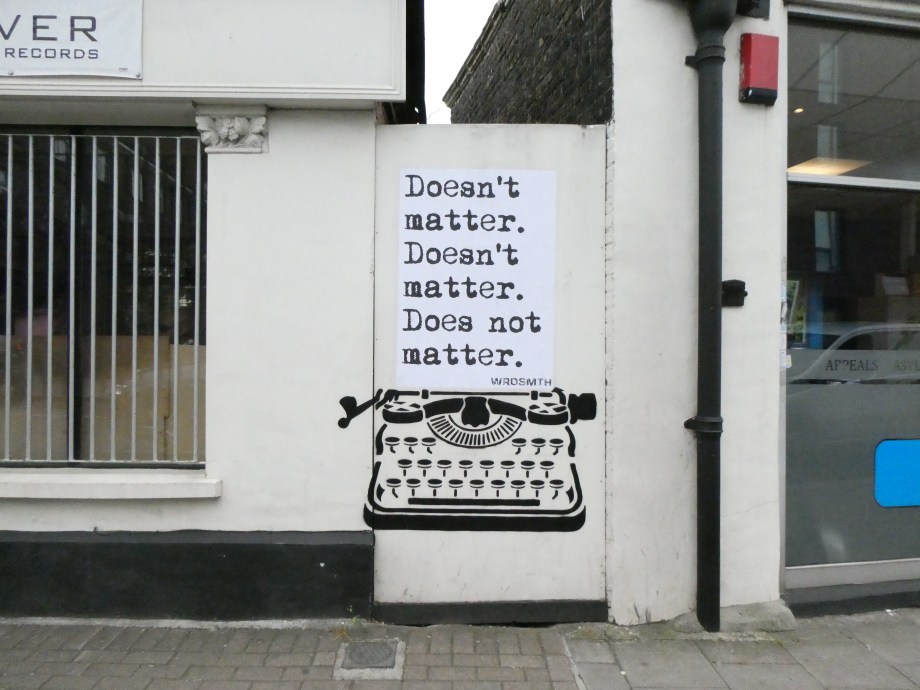 VER
RECORDS
Doesn't
matter.
Doesn't
matter.
Does not
matter.
WRDSMTH
APPEALS